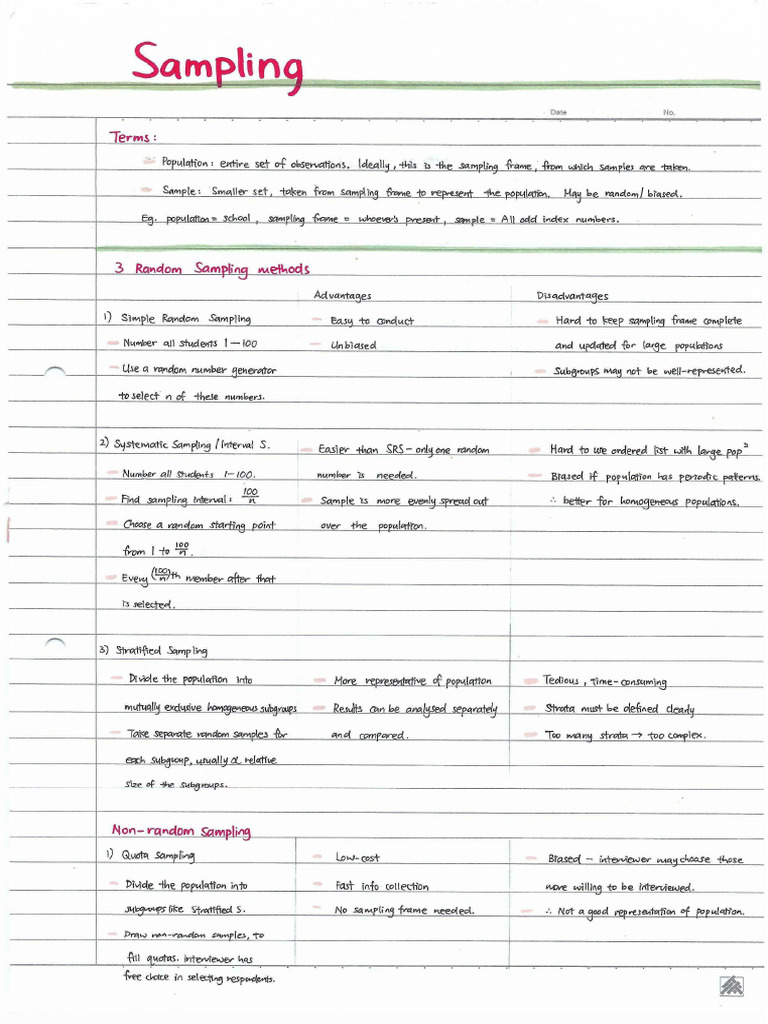 Sampling
Date No.
Terms:
Population: entire set of observations. Ideally, this is the sampling frame, from which samples are taken.
Sample: Smaller set, taken from sampling frame to represent the population. May be random/biased.
Eg. population = school, sampling frame = whoever's present, sample = All odd index numbers.
3 Random Sampling methods
Advantages Disadvantages
1) Simple Random Sampling
– Number all students 1–100
– Use a random number generator
to select n of these numbers.
– Easy to conduct
– Unbiased
– Hard to keep sampling frame complete
and updated for large populations
– Subgroups may not be well-represented.
2) Systematic Sampling / Interval S.
– Number all students 1–100.
– Find sampling interval: 100/n
– Choose a random starting point
from 1 to 100/n.
– Every (100/n)th member after that
is selected.
– Easier than SRS – only one random
number is needed.
– Sample is more evenly spread out
over the population.
– Hard to use ordered list with large popⁿ
– Biased if population has periodic patterns.
∴ better for homogeneous populations.
3) Stratified Sampling
– Divide the population into
mutually exclusive homogeneous subgroups
– Take separate random samples for
each subgroup, usually ∝ relative
size of the subgroups.
– More representative of population
– Results can be analysed separately
and compared.
– Tedious, time-consuming
– Strata must be defined clearly
– Too many strata → too complex.
Non-random Sampling
1) Quota Sampling
– Divide the population into
subgroups like Stratified S.
– Draw non-random samples, to
fill quotas. interviewer has
free choice in selecting respondents.
– Low-cost
– Fast info collection
– No sampling frame needed.
– Biased – interviewer may choose those
more willing to be interviewed.
– ∴ Not a good representation of population.